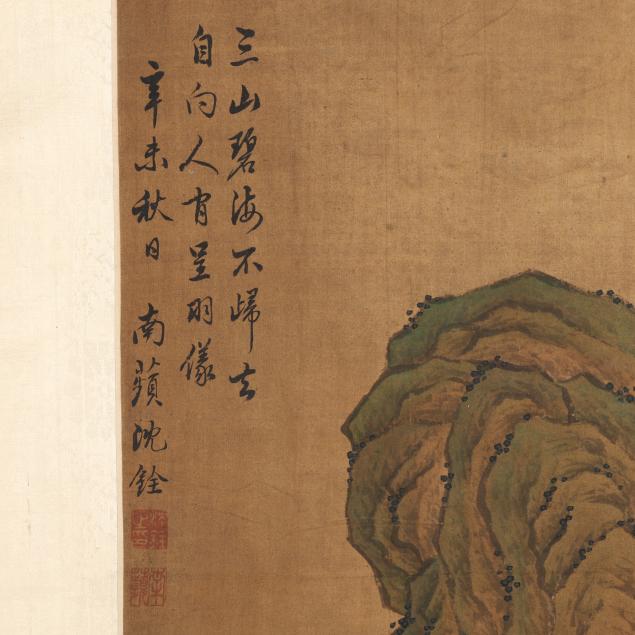 三山碧海不歸去
自向人有呈羽儀
辛未秋日 南蘋沈銓